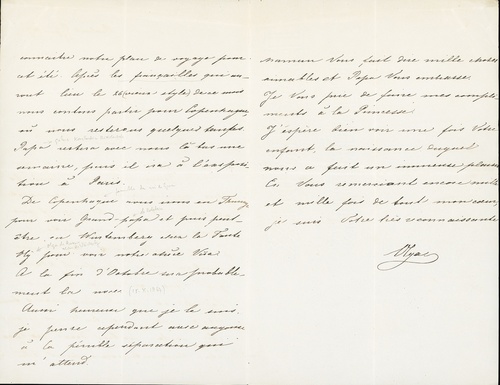 connaitre notre plan de voyage pour
cet été. Après les fiançailles qui au-
ront lieu le 26 (vieux style) de ce mois
nous comptons partir pour Copenhague,
où nous resterons quelques temps.
Papa restera avec nous là bas une
semaine, puis il ira à l'exposi-
tion à Paris.
De Copenhague nous irons en
pour voir Grand-papa et puis peut-
être, en Wurtemberg chez la Tante
Olly pour voir notre chère Vera.
A la fin d'Octobre sera probable-
ment la noce
Aussi heureuse que je le suis,
je pense cependant avec angoisse
à la pénible séparation qui
m'attend.
Maman Vous fait dire mille choses
aimables et Papa Vous embrasse.
Je Vous prie de faire mes compli-
ments à la Princesse.
J'espère bien voir une fois Votre
enfant, la naissance duquel
nous a fait un immense plaisir.
En Vous remerciant encore mille
et mille fois de tout mon cœur,
je suis Votre très reconnaissante
Olga